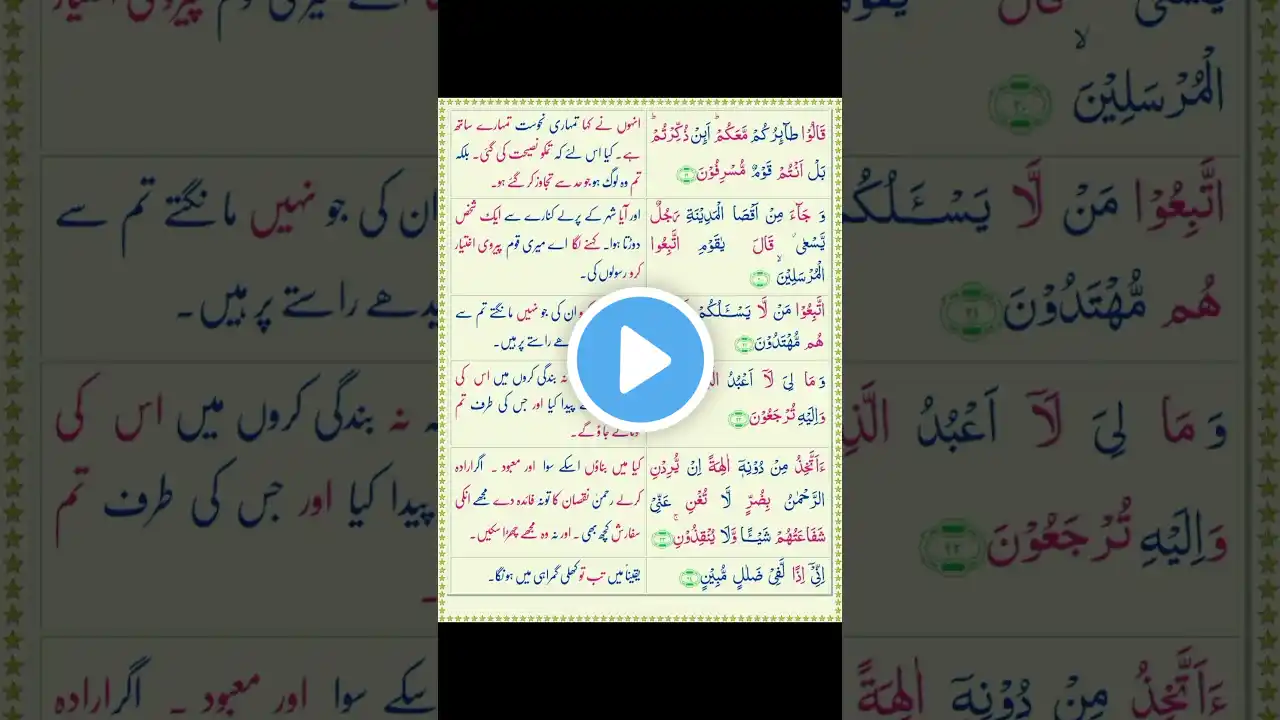 قَالُوْا طَآىِٕرُكُمْ مَّعَكُمْ ؕ اَىِٕنْ ذُكِّرْتُمْ ؕ
بَلْ اَنْتُمْ قَوْمٌ مُّسْرِفُوْنَ ۱۹
انہوں نے کہا تمہاری نحوست تمہارے ساتھ
ہے۔ کیا اس لئے کہ تمکو نصیحت کی گئی۔ بلکہ
تم وہ لوگ ہو جو حد سے تجاوز کر گئے ہو۔
وَ جَآءَ مِنْ اَقْصَا الْمَدِیْنَةِ رَجُلٌ
یَّسْعٰی ۫ قَالَ یٰقَوْمِ اتَّبِعُوا
الْمُرْسَلِیْنَ ۙ ۲۰
اور آیا شہر کے پرلے کنارے سے ایک شخص
دوڑتا ہوا۔ کہنے لگا اے میری قوم پیروی اختیار
کرو رسولوں کی۔
اتَّبِعُوْا مَنْ لَّا یَسْـَٔلُكُمْ
هُم مُّهْتَدُوْنَ ۲۱
ان کی جو نہیں مانگتے تم سے
راستے پر ہیں۔
وَ مَا لِیَ لَاۤ اَعْبُدُ
وَاِلَیْهِ تُرْجَعُوْنَ ۲۲
نہ بندگی کروں میں اس کی
پیدا کیا اور جس کی طرف تم
جاؤ گے۔
ءَاَتَّخِذُ مِنْ دُوْنِهٖۤ اٰلِهَةً اِنْ یُّرِدْنِ
الرَّحْمٰنُ بِضُرٍّ لَّا تُغْنِ عَنِّیْ
شَفَاعَتُهُمْ شَیْـًٔا وَّلَا یُنْقِذُوْنِ ۚ ۲۳
کیا میں بناؤں اسکے سوا اور معبود ۔ اگر ارادہ
کرلے رحمٰن نقصان کا تو نہ فائدہ دے مجھے انکی
سفارش کچھ بھی ۔ اور نہ وہ مجھے چھڑا سکیں۔
اِنِّیْۤ اِذًا لَّفِیْ ضَلٰلٍ مُّبِیْنٍ ۲۴
یقیناً میں تب تو کھلی گمراہی میں ہونگا۔